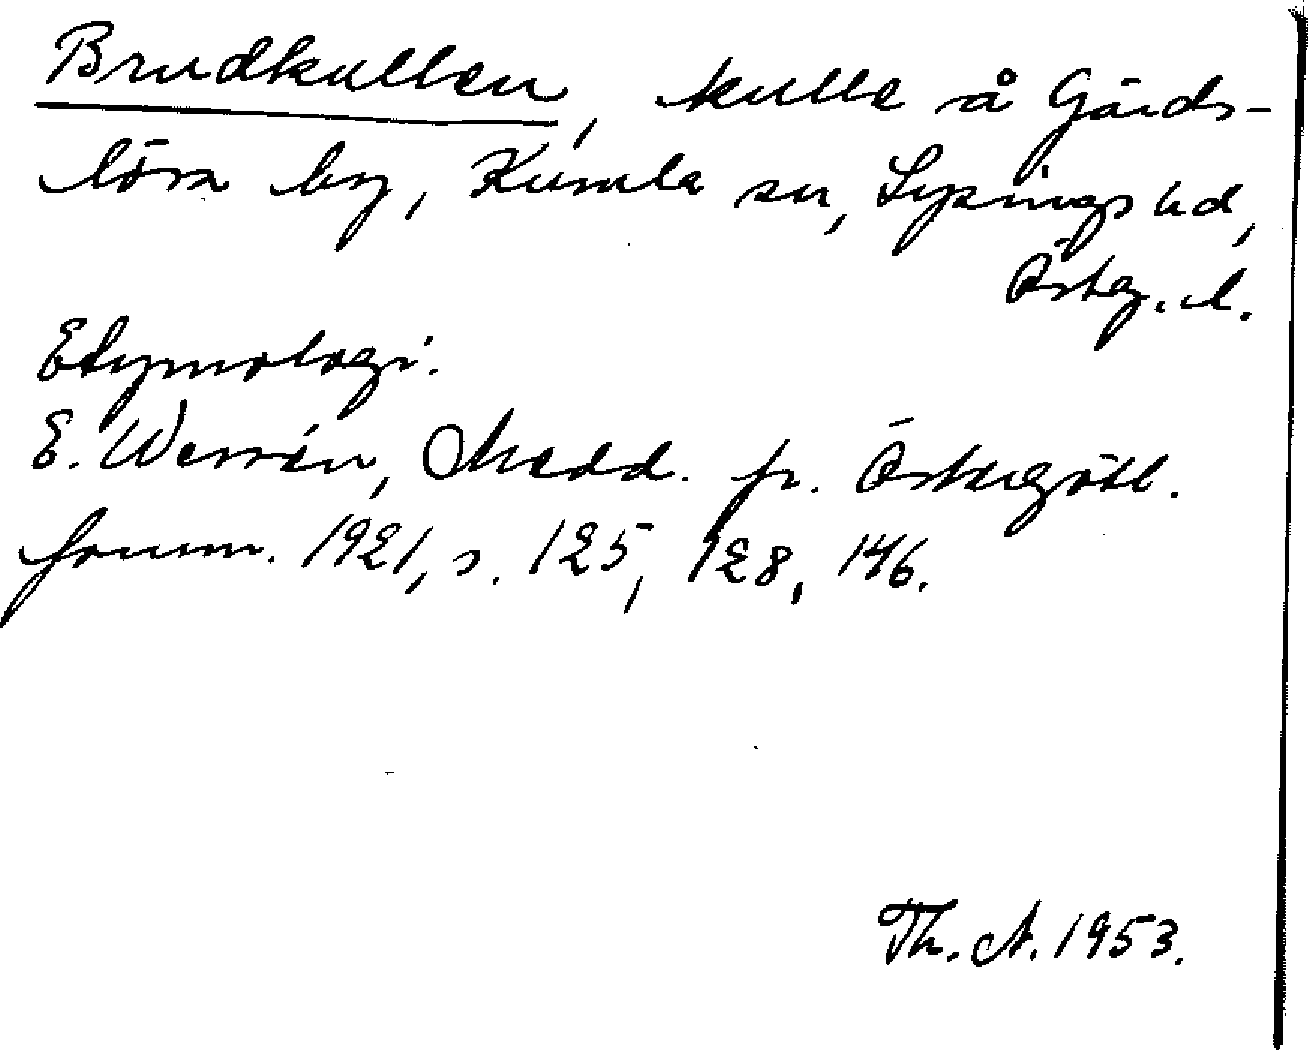 Brudkullen, kulle å Gårds-
lösa by, Kumla sn, Lysings hd,
Östg. l.
Etymologi.
E. Wessén, Medd. fr. Östergötl.
fornm. 1921, s. 125, 128, 146.
Th. A. 1953.